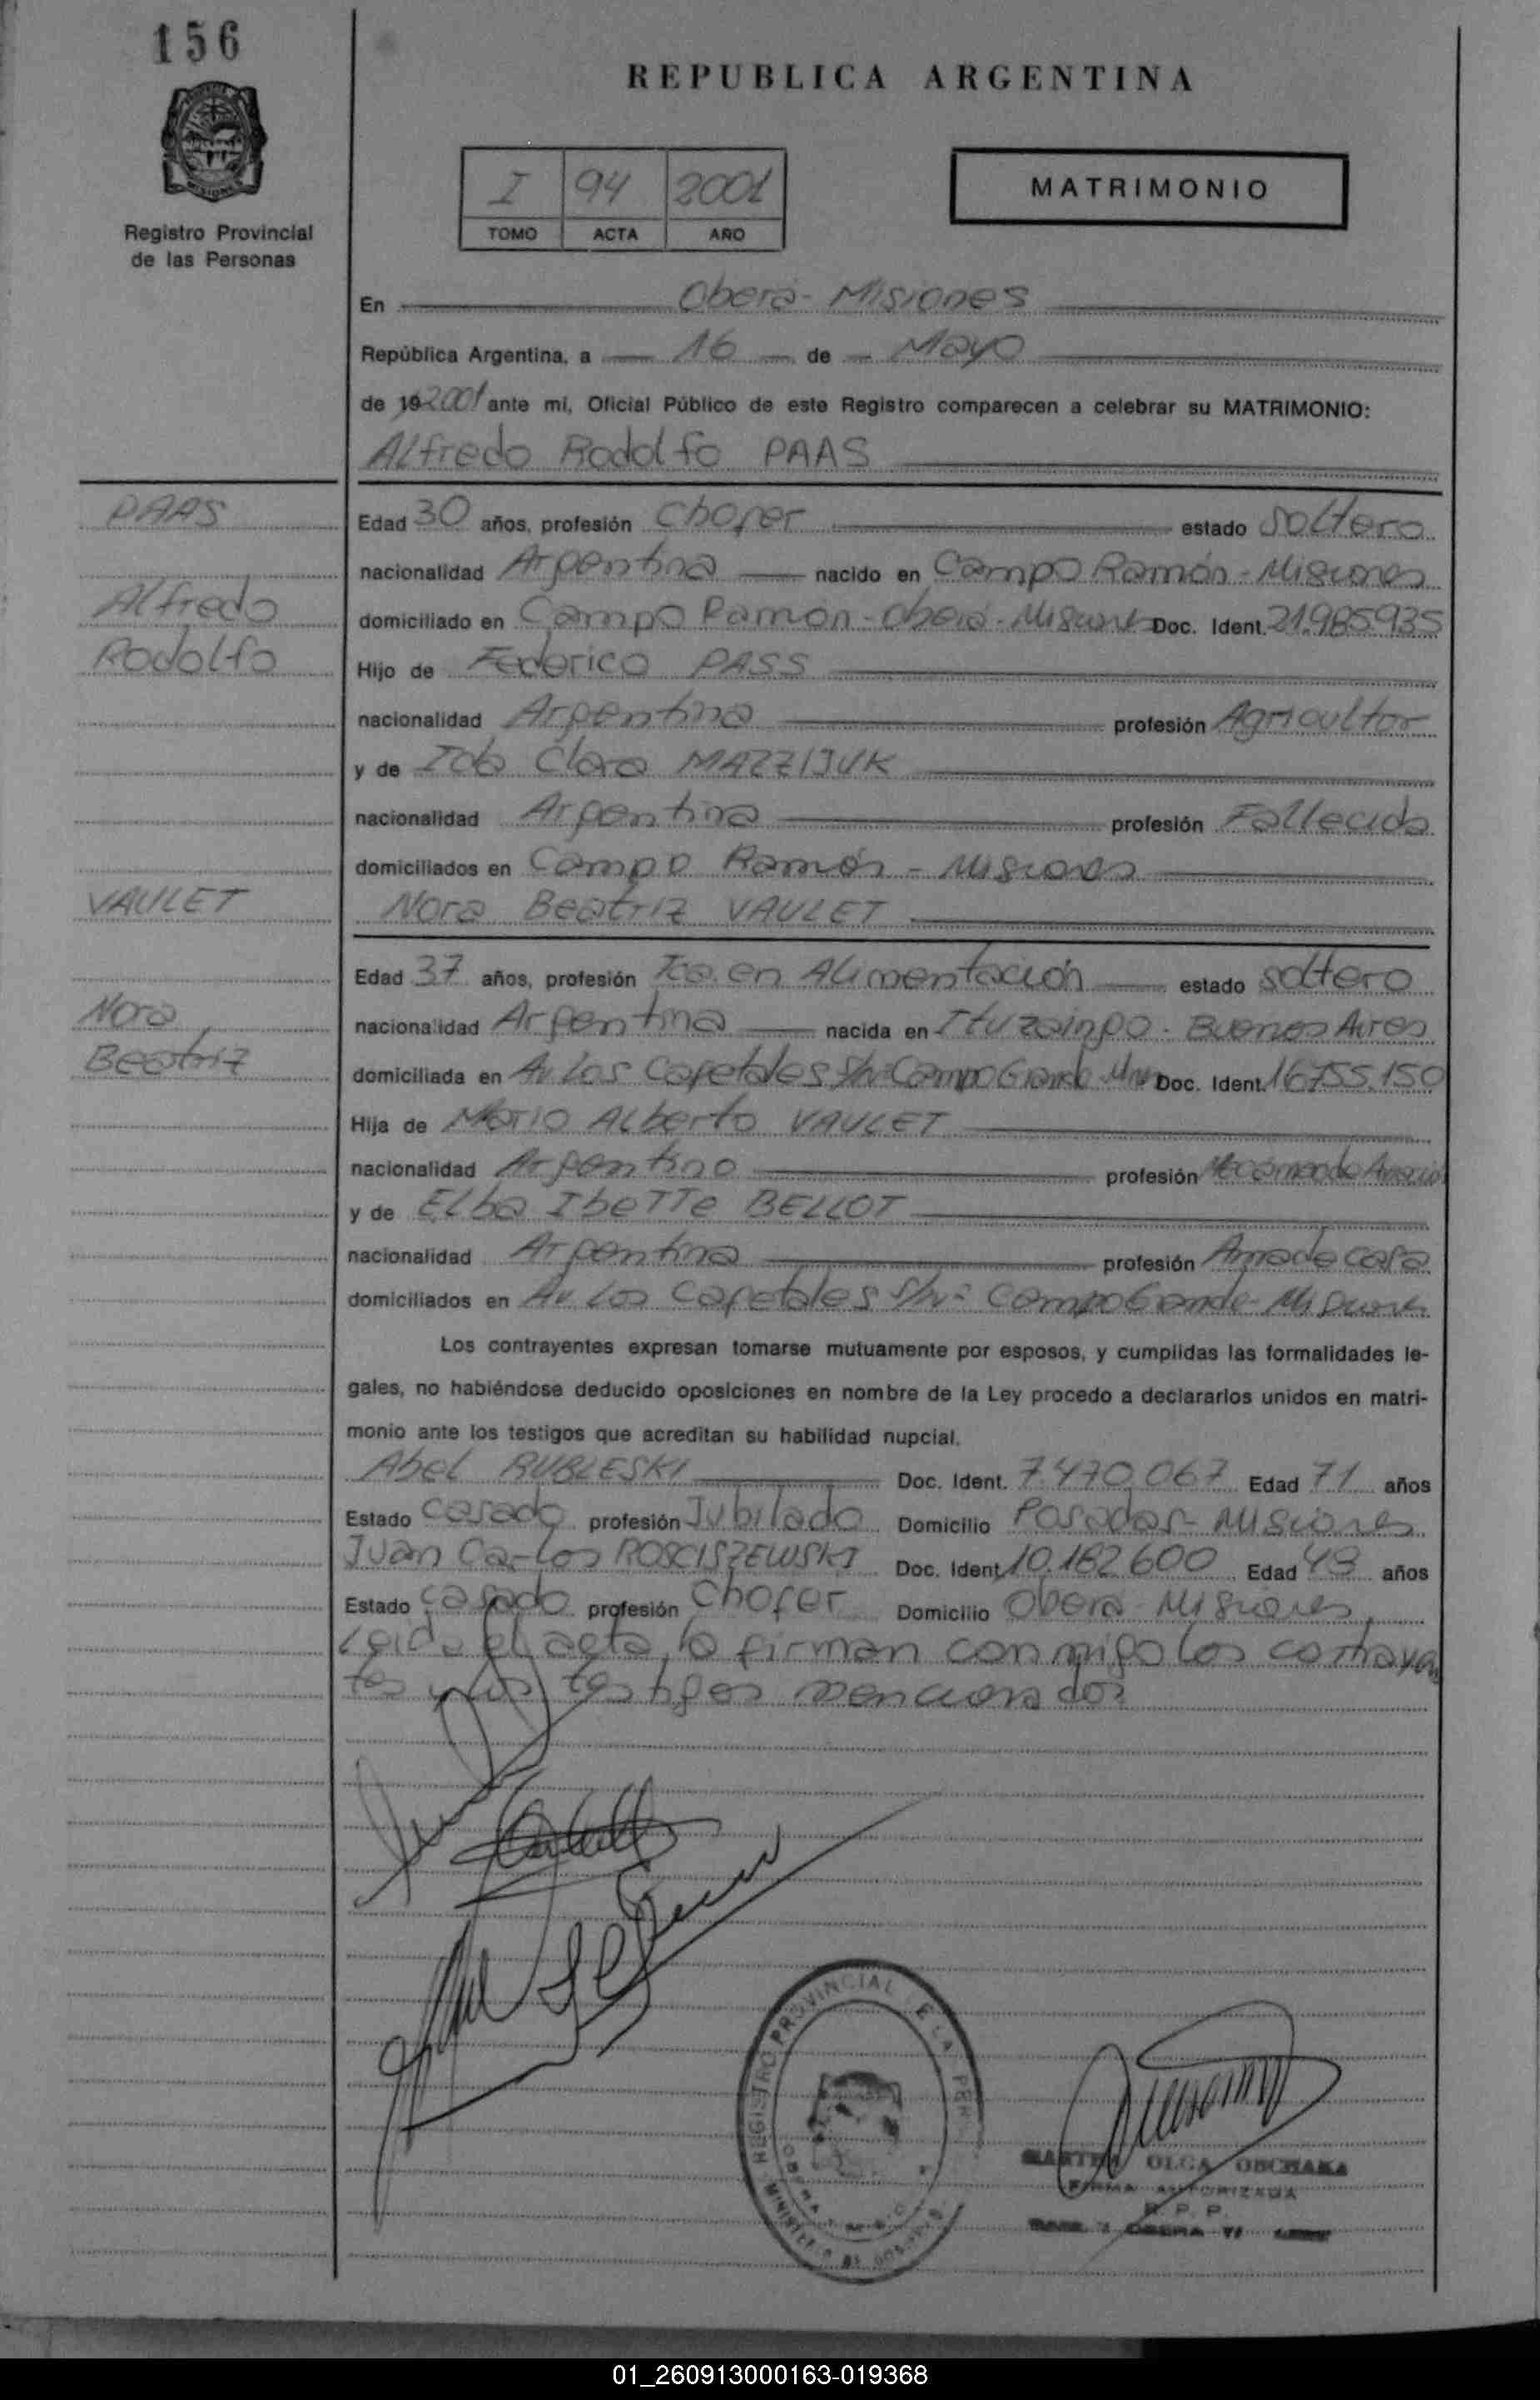 156
REPUBLICA ARGENTINA
I 94 2001
TOMO ACTA AÑO
MATRIMONIO
Registro Provincial
de las Personas
En Oberá - Misiones
República Argentina, a 16 de Mayo
de 19 2001 ante mí, Oficial Público de este Registro comparecen a celebrar su MATRIMONIO:
Alfredo Rodolfo PAAS
PAAS
Edad 30 años, profesión Chofer estado Soltero
nacionalidad Argentina nacido en Campo Ramón - Misiones
Alfredo
domiciliado en Campo Ramón - Oberá - Misiones Doc. Ident. 21.985.935
Rodolfo
Hijo de Federico PASS
nacionalidad Argentina profesión Agricultor
y de Ida Clara
nacionalidad Argentina profesión Fallecida
domiciliados en Campo Ramón - Misiones
VAULET
Nora Beatriz VAULET
Edad 37 años, profesión Tca. en Alimentación estado soltero
Nora
nacionalidad Argentina nacida en Ituzaingo - Buenos Aires
Beatriz
domiciliada en Av. Los Cafetales S/Nº Campo Grande Mnes Doc. Ident. 16.755.150
Hija de Mario Alberto VAULET
nacionalidad Argentino profesión
y de Elba Ibette BELLOT
nacionalidad Argentina profesión Ama de casa
domiciliados en Av. Los Cafetales S/Nº Campo Grande - Misiones
Los contrayentes expresan tomarse mutuamente por esposos, y cumplidas las formalidades le-
gales, no habiéndose deducido oposiciones en nombre de la Ley procedo a declararlos unidos en matri-
monio ante los testigos que acreditan su habilidad nupcial.
Abel RUBLESKI Doc. Ident. 7.470.067 Edad 71 años
Estado casado profesión Jubilado Domicilio Posadas - Misiones
Juan Carlos ROSCISZEWSKI Doc. Ident. 10.182.600 Edad 49 años
Estado casado profesión Chofer Domicilio Oberá - Misiones
Leida el acta, la firman conmigo los contrayen
tes y los testigos mencionados
REGISTRO PROVINCIAL DE LA PER
OLGA OBCHAKA
FIRMA AUTORIZADA
R. P. P.
01_260913000163-019368